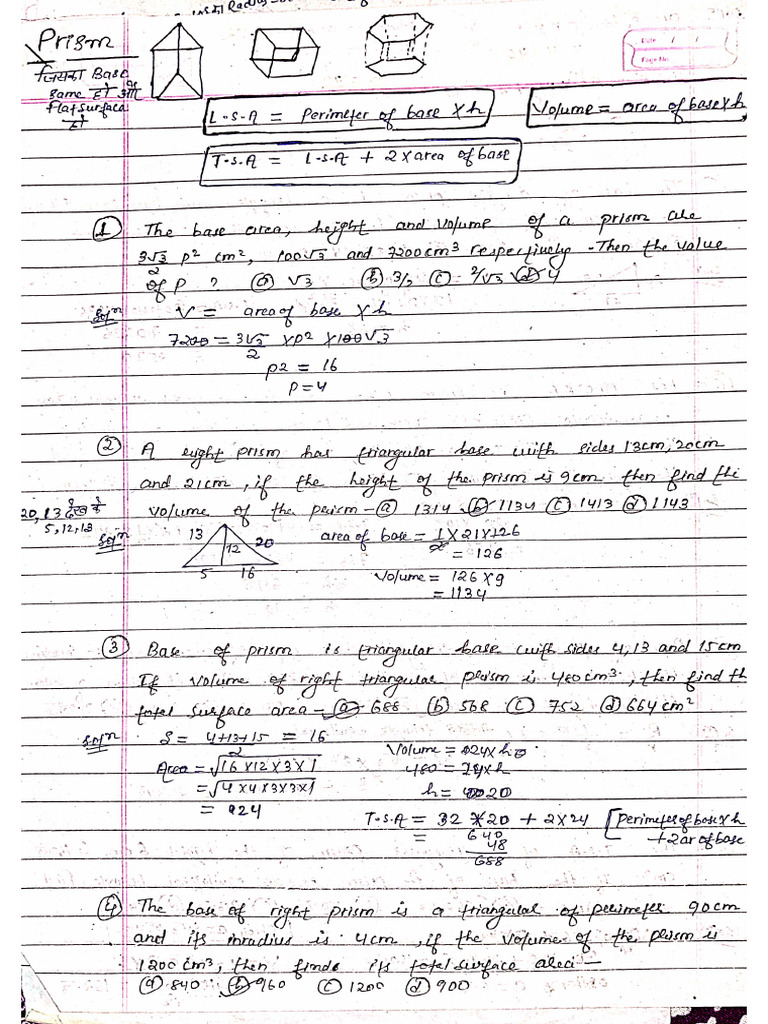 Prism
Date / /
Page No.
जिसका Base
same हो और
flat surface
हो
L.S.A = Perimeter of base × h
Volume = area of base × h
T.S.A = L.S.A + 2 × area of base
① The base area, height and volume of a prism are
3√3/2 p² cm², 100√3 and 7200 cm³ respectively. Then the value
of P ? ⓐ √3 ⓑ 3/2 ⓒ 2/√3 ⓓ 4
Solⁿ V = area of base × h
7200 = 3√3/2 × p² × 100√3
p2 = 16
P = 4
② A right prism has triangular base with sides 13cm, 20cm
and 21cm, if the height of the prism is 9cm then find the
volume of the prism - ⓐ 1314 ⓑ 1134 ⓒ 1413 ⓓ 1143
20, 13 देख के
5, 12, 13
Solⁿ
13 12 20
5 16
area of base = 1/2 × 21 × 126
= 126
Volume = 126 × 9
= 1134
③ Base of prism is triangular base with sides 4, 13 and 15cm
If volume of right triangular prism is 480cm³, then find th
total surface area - ⓐ 688 ⓑ 568 ⓒ 752 ⓓ 664 cm²
Solⁿ S = 4+13+15/2 = 16
Area = √16×12×3×1
= √4×4×3×3×1
= 24
Volume = 24 × h
480 = 24 × h
h = 20
T.S.A = 32 × 20 + 2 × 24 [Perimeter of base × h
+ 2 ar of base
= 640
48
688
④ The base of right prism is a triangular of perimeter 90cm
and its inradius is 4cm, if the volume of the prism is
1200 cm³, then finde its total surface area -
ⓐ 840 ⓑ 960 ⓒ 1200 ⓓ 900